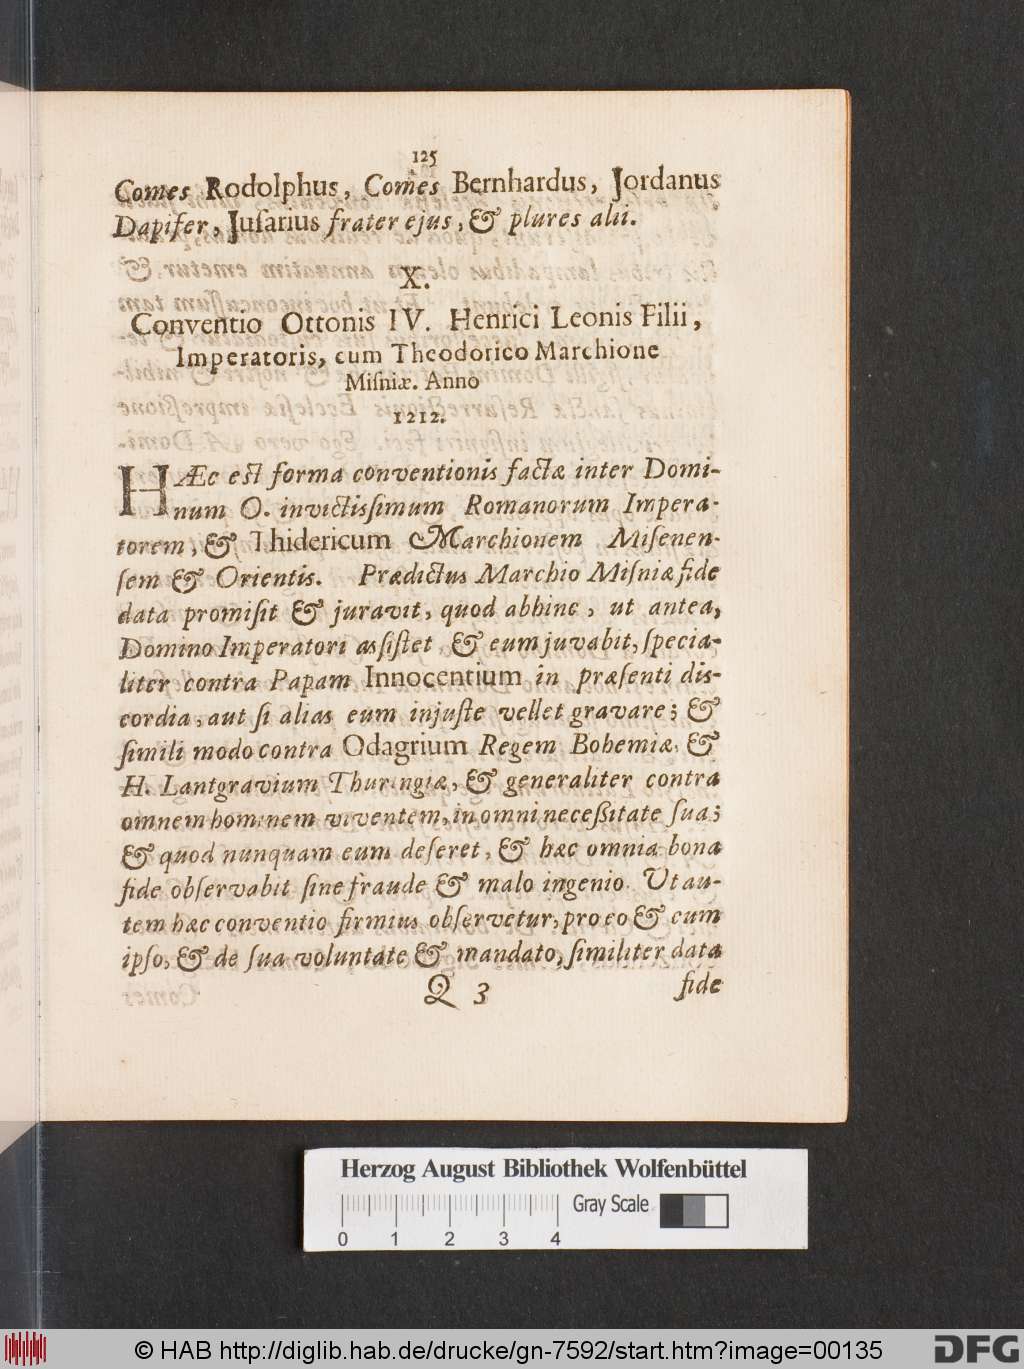 125
Comes Rodolphus, Comes Bernhardus, Jordanus
Dapifer, Juſarius frater ejus, & plures alii.
X.
Conventio Ottonis IV. Henrici Leonis Filii,
Imperatoris, cum Theodorico Marchione
Miſniæ. Anno
1212.
HÆc eſt forma conventionis factæ inter Domi-
num O. invictisſimum Romanorum Impera-
torem, & Thidericum Marchionem Miſenen-
ſem & Orientis. Prædictus Marchio Miſniæ fide
data promiſit & juravit, quod abhinc, ut antea,
Domino Imperatori asſiſtet & eum juvabit, ſpecia-
liter contra Papam Innocentium in præſenti dis-
cordia, aut ſi alias eum injuſte vellet gravare; &
ſimili modo contra Odagrium Regem Bohemiæ, &
H. Lantgravium Thuringiæ, & generaliter contra
omnem hominem viventem, in omni neceßitate ſua;
& quod nunquam eum deſeret, & hæc omnia bona
fide obſervabit ſine fraude & malo ingenio. Ut au-
tem hæc conventio firmius obſervetur, pro eo & cum
ipſo, & de ſua voluntate & mandato, ſimiliter data
Q 3 fide
Herzog August Bibliothek Wolfenbüttel
Gray Scale
0 1 2 3 4
© HAB http://diglib.hab.de/drucke/gn-7592/start.htm?image=00135
DFG